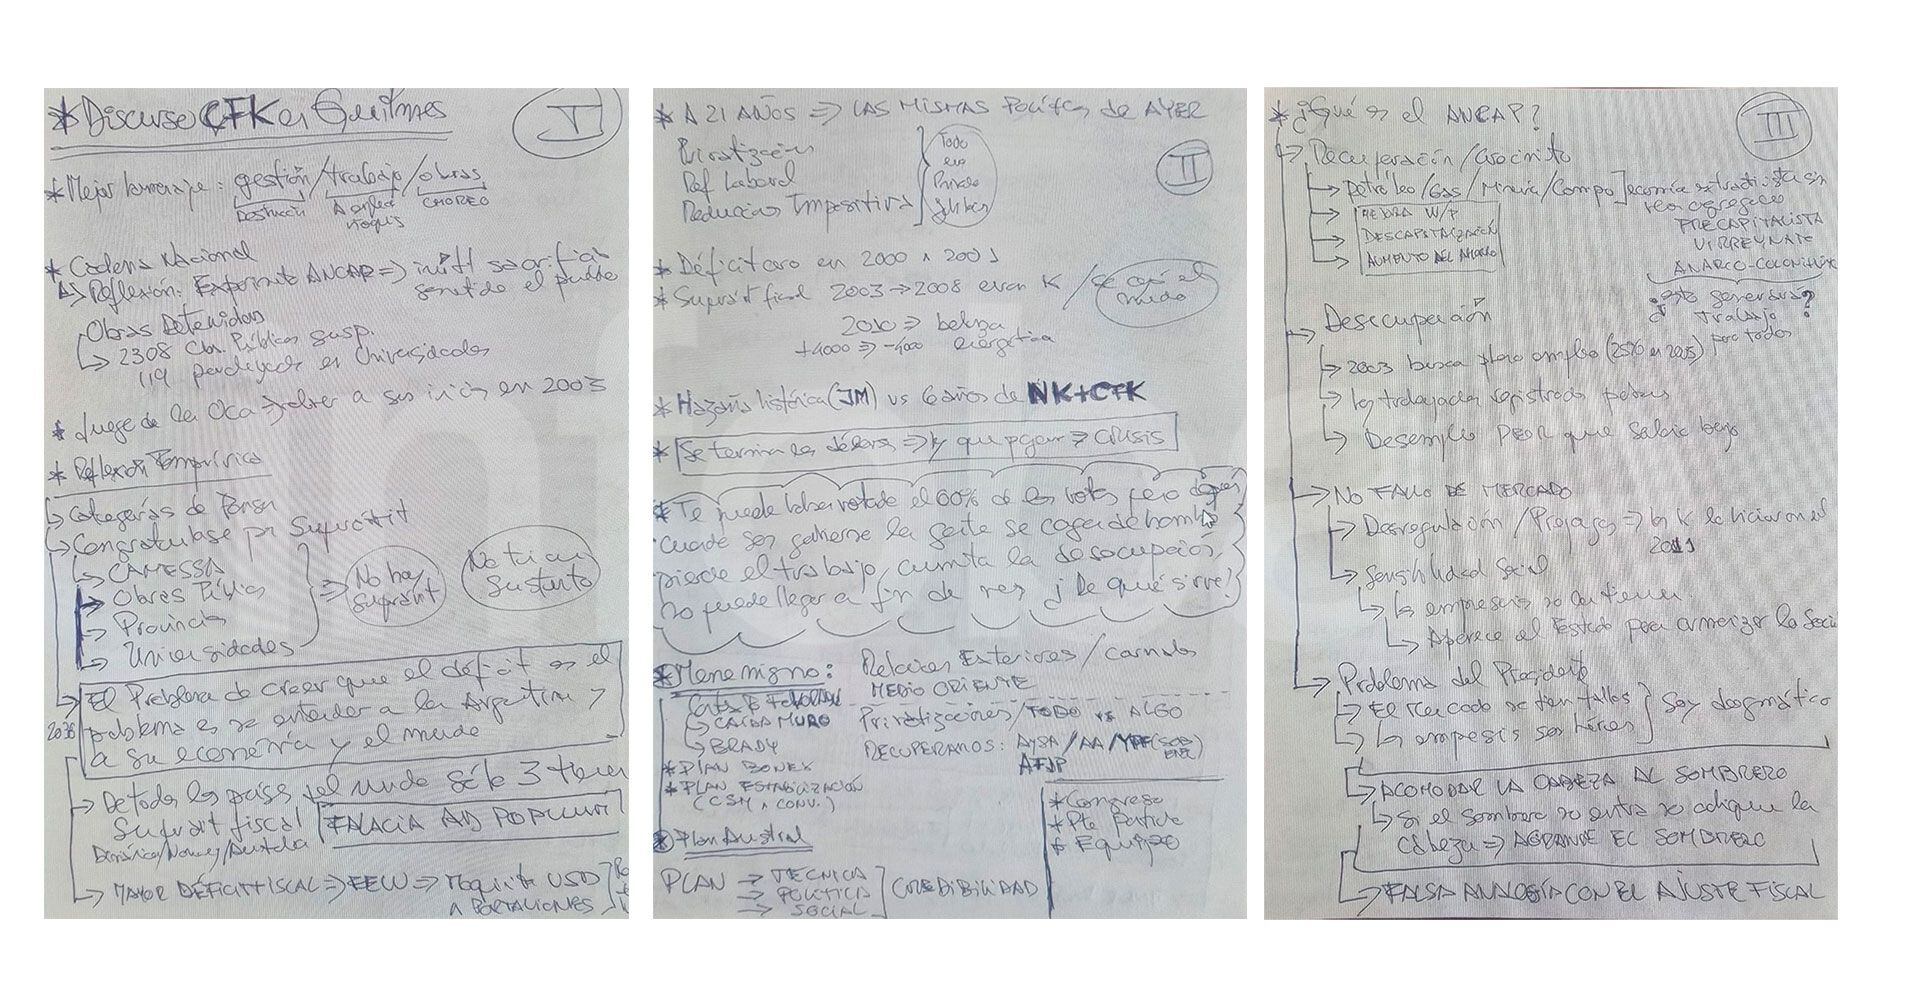 *Discurso CFK en Quilmes
I
*Mejor homenaje: gestión/trabajo/obras
Destrucción
ñoquis
CHOREO
* Cadena Nacional
↳ Reflexión: Experimento ANCAP ⇒ inútil sacrificio
sometido el pueblo
Obras Detenidas
↳ 2308 Obr. Públicas susp.
119 paralizadas en Universidades
* Juego de la Oca ⇒ volver a sus inicios en 2003
* Reflexión Empírica
↳ Categorías de Pensar
↳ Congratularse por Superávit
↳ CAMESSA
↳ Obras Públicas
↳ Provincias
↳ Universidades
⇒ No hay
superávit
No tiene
sustento
↳ El Problema de creer que el déficit es el
problema es no entender a la Argentina,
a su economía y el mundo
↳ De todos los países del mundo sólo 3 tienen
Superávit fiscal
FALACIA AD POPULUM
Dinamarca/Noruega/
↳ MAYOR DÉFICIT FISCAL ⇒ EEUU ⇒ Maquinita USD
APORTACIONES
* A 21 AÑOS ⇒ LAS MISMAS Políticas de AYER
II
Privatización
Ref Laboral
Reducción Impositiva
Todo
era
* Déficit cero en 2000 y 2001
* Superávit fiscal 2003→2008 eran K / se cayó el
mundo
2010 ⇒ balanza
energética
+4000 ⇒ -4000
* Hazaña histórica (JM) vs 6 años de NK+CFK
* Se terminan los dólares ⇒ hay que pagar ⇒ CRISIS
* Te puede haber votado el 60% de los votos pero después
cuando sos gobierno la gente se caga de hambre
pierde el trabajo, aumenta la desocupación,
no puede llegar a fin de mes ¿De qué sirve?
*Menemismo:
Relaciones Exteriores / carnales
MEDIO ORIENTE
↳ CAÍDA MURO
↳ BRADY
Privatizaciones/TODO vs ALGO
RECUPERAMOS: AYSA/AA/YPF
AFJP
* PLAN BONEX
* PLAN ESTABILIZACIÓN
(CSM y CONV.)
* Plan Austral
PLAN → TECNICA
→ POLÍTICA
→ SOCIAL
CREDIBILIDAD
* Congreso
* Pte Partido
* Equipo
* ¿Qué es el ANCAP?
III
↳ Recuperación / Crecimiento
↳ Petróleo/Gas/Minería/Campo] economía extractivista sin
valor agregado
MEJORA W/P
DESCAPITALIZACIÓN
AUMENTO DEL AHORRO
PRECAPITALISTA
VIRREYNATO
ANARCO-COLONIALISTA
¿esto generará
trabajo
para todos?
→ Desocupación
↳ 2003 busca pleno empleo
↳ los trabajadores registrados pobres
↳ Desempleo PEOR que salario bajo
→ NO FALLO DE MERCADO
↳ Desregulación / Prepagas ⇒ los K lo hicieron el
2011
↳ Sensibilidad Social
↳ las empresas no la tienen
↳ Aparece el Estado para armonizar la Soci
→ Problema del Presidente
↳ El mercado no tiene fallos
↳ las empresas son héroes
Soy dogmático
↳ ACOMODAR LA CABEZA AL SOMBRERO
↳ Si el sombrero no entra no achique la
cabeza ⇒ AGRANDE EL SOMBRERO
↳ FALSA ANALOGÍA CON EL AJUSTE FISCAL